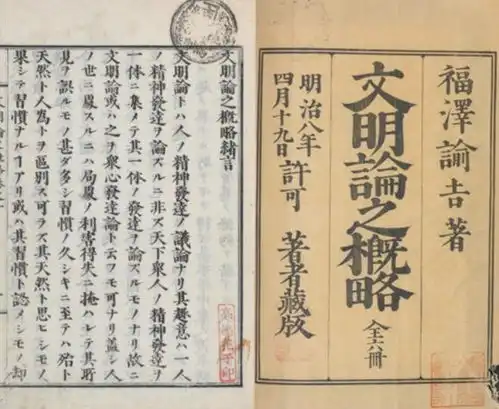 福澤諭吉著
文明論之概略 全六冊
明治八年
四月十九日許可 著者藏版
文明論之概略緒言
文明論トハ人ノ精神發達ノ議論ナリ其趣意ハ一人
ノ精神發達ヲ論ズルニ非ズ天下衆人ノ精神發達ヲ
一体ニ集メテ其一体ノ發達ヲ論ズルモノナリ故ニ
文明論或ハ之ヲ衆心發達論ト云フモ可ナリ蓋シ人
ノ世ニ處スルニハ局處ノ利害得失ニ掩ハレテ其所
見ヲ誤ルモノ甚ダ多シ習慣ノ久シキニ至テハ殆ト
天然ト人爲トヲ區別ス可ラズ其天然ト思ヒシモノ
果シテ習慣ナルヿアリ或ハ其習慣ト認メシモノ却